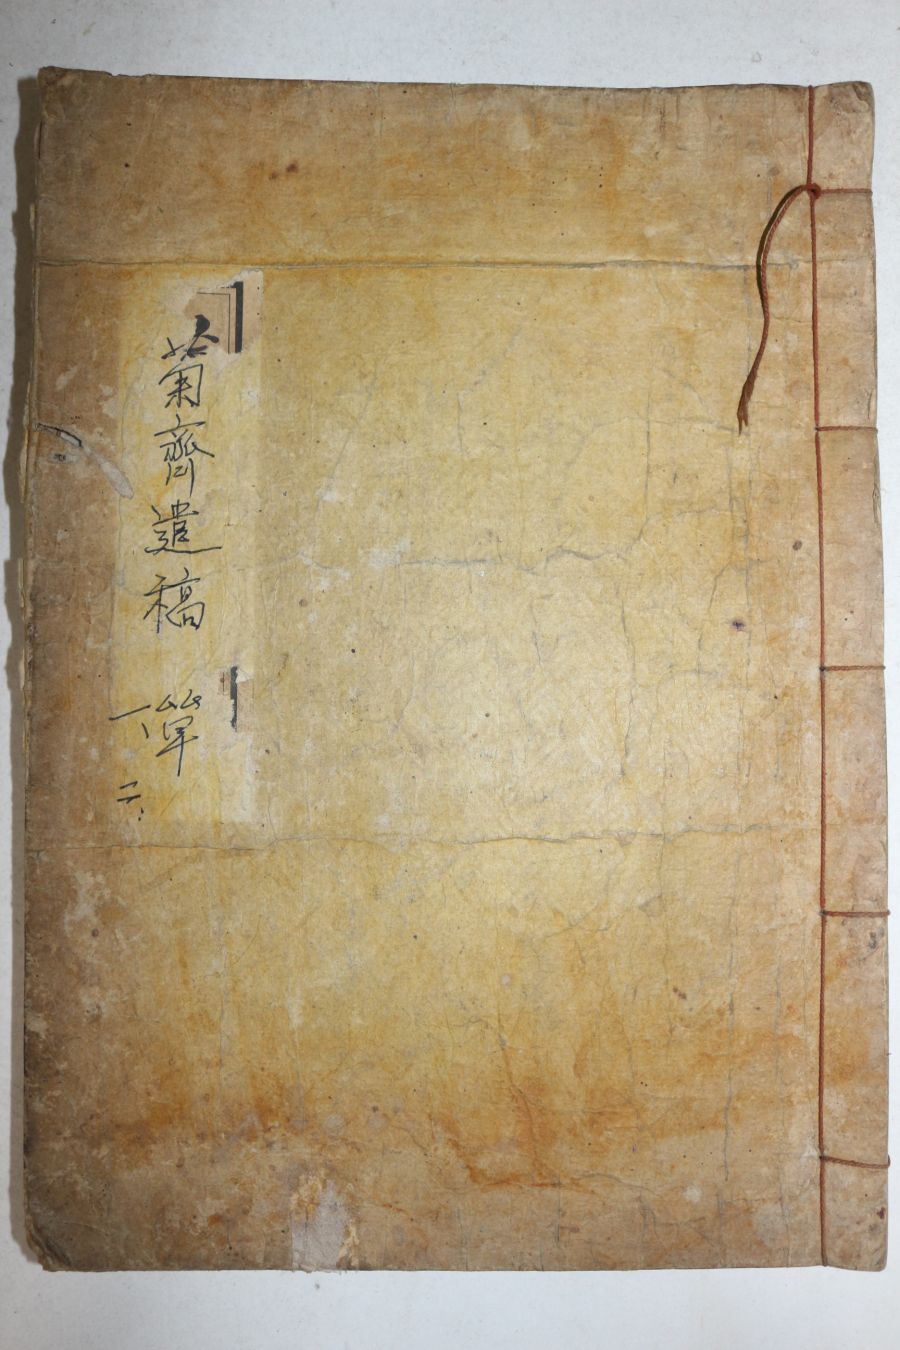 菊齊遺稿 單
一、二、